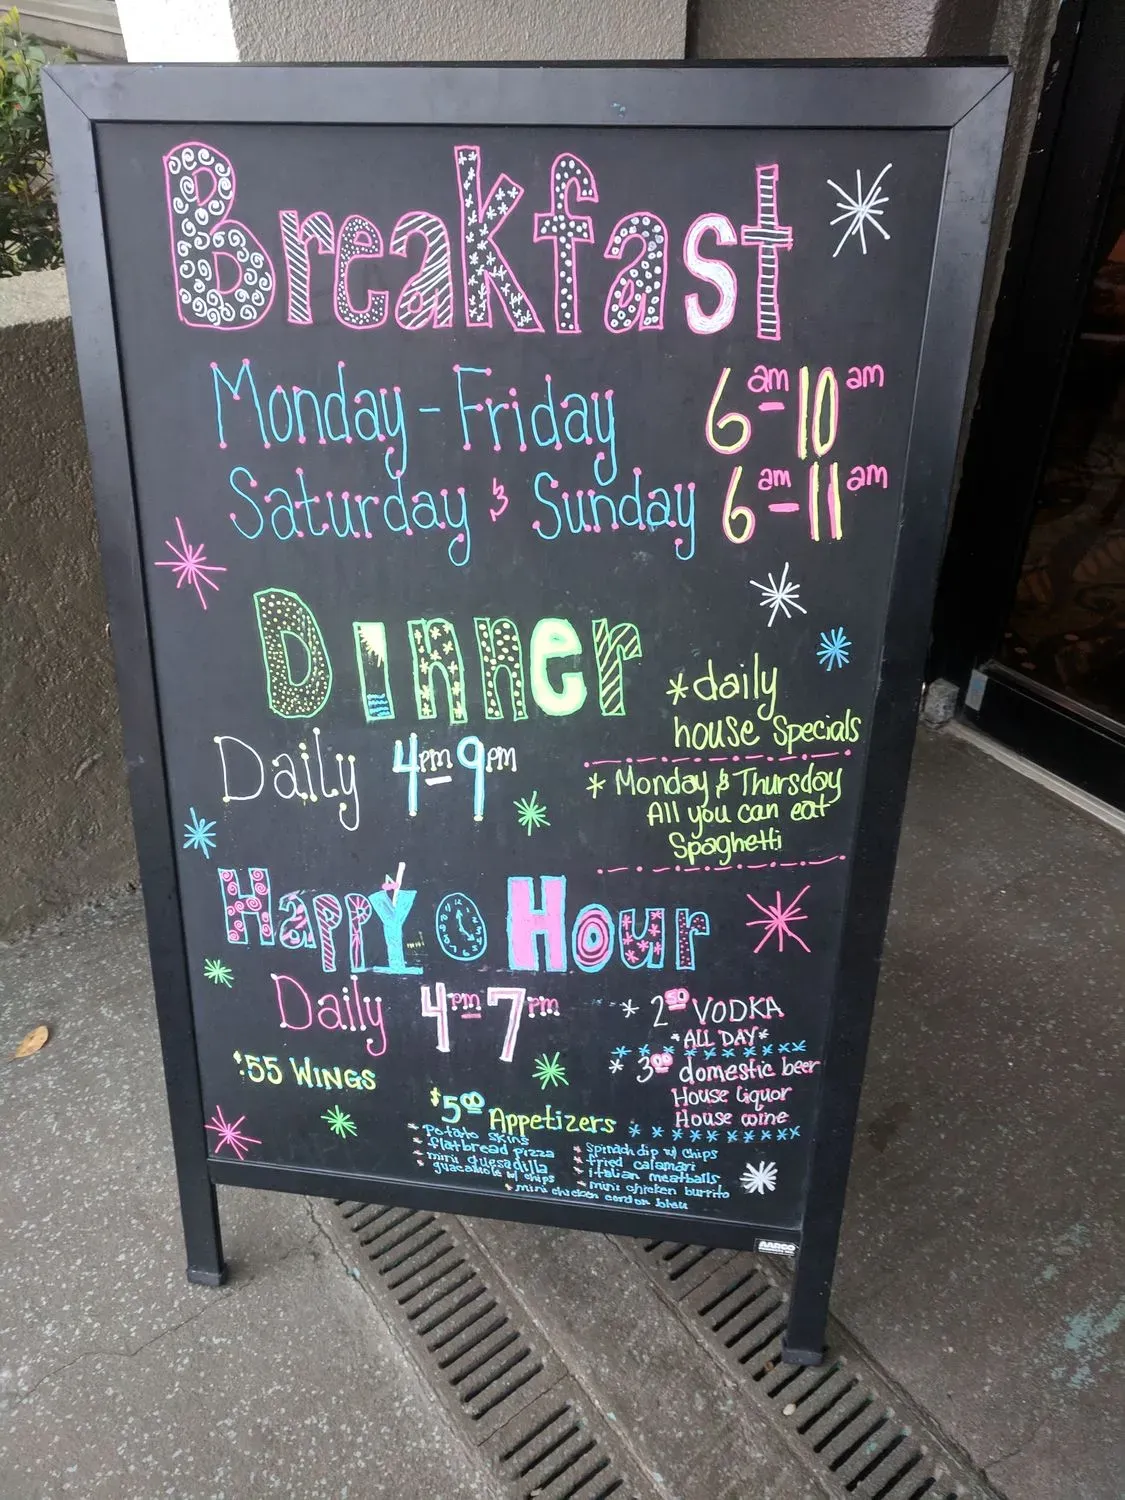 Breakfast
Monday - Friday 6am-10am
Saturday & Sunday 6am-11am
Dinner
Daily 4pm-9pm
*daily
house Specials
* Monday & Thursday
All you can eat
Spaghetti
Happy Hour
Daily 4pm-7pm
* 2.50 VODKA
*ALL DAY*
* 3.00 domestic beer
House liquor
House wine
$.55 WINGS
$5.00 Appetizers
* Potato skins
* flatbread pizza
* mini quesadilla
* guacamole w/ chips
* Spinach dip w/ chips
* fried calamari
* italian meatballs
* mini chicken burrito
* mini chicken cordon bleu
AARCO